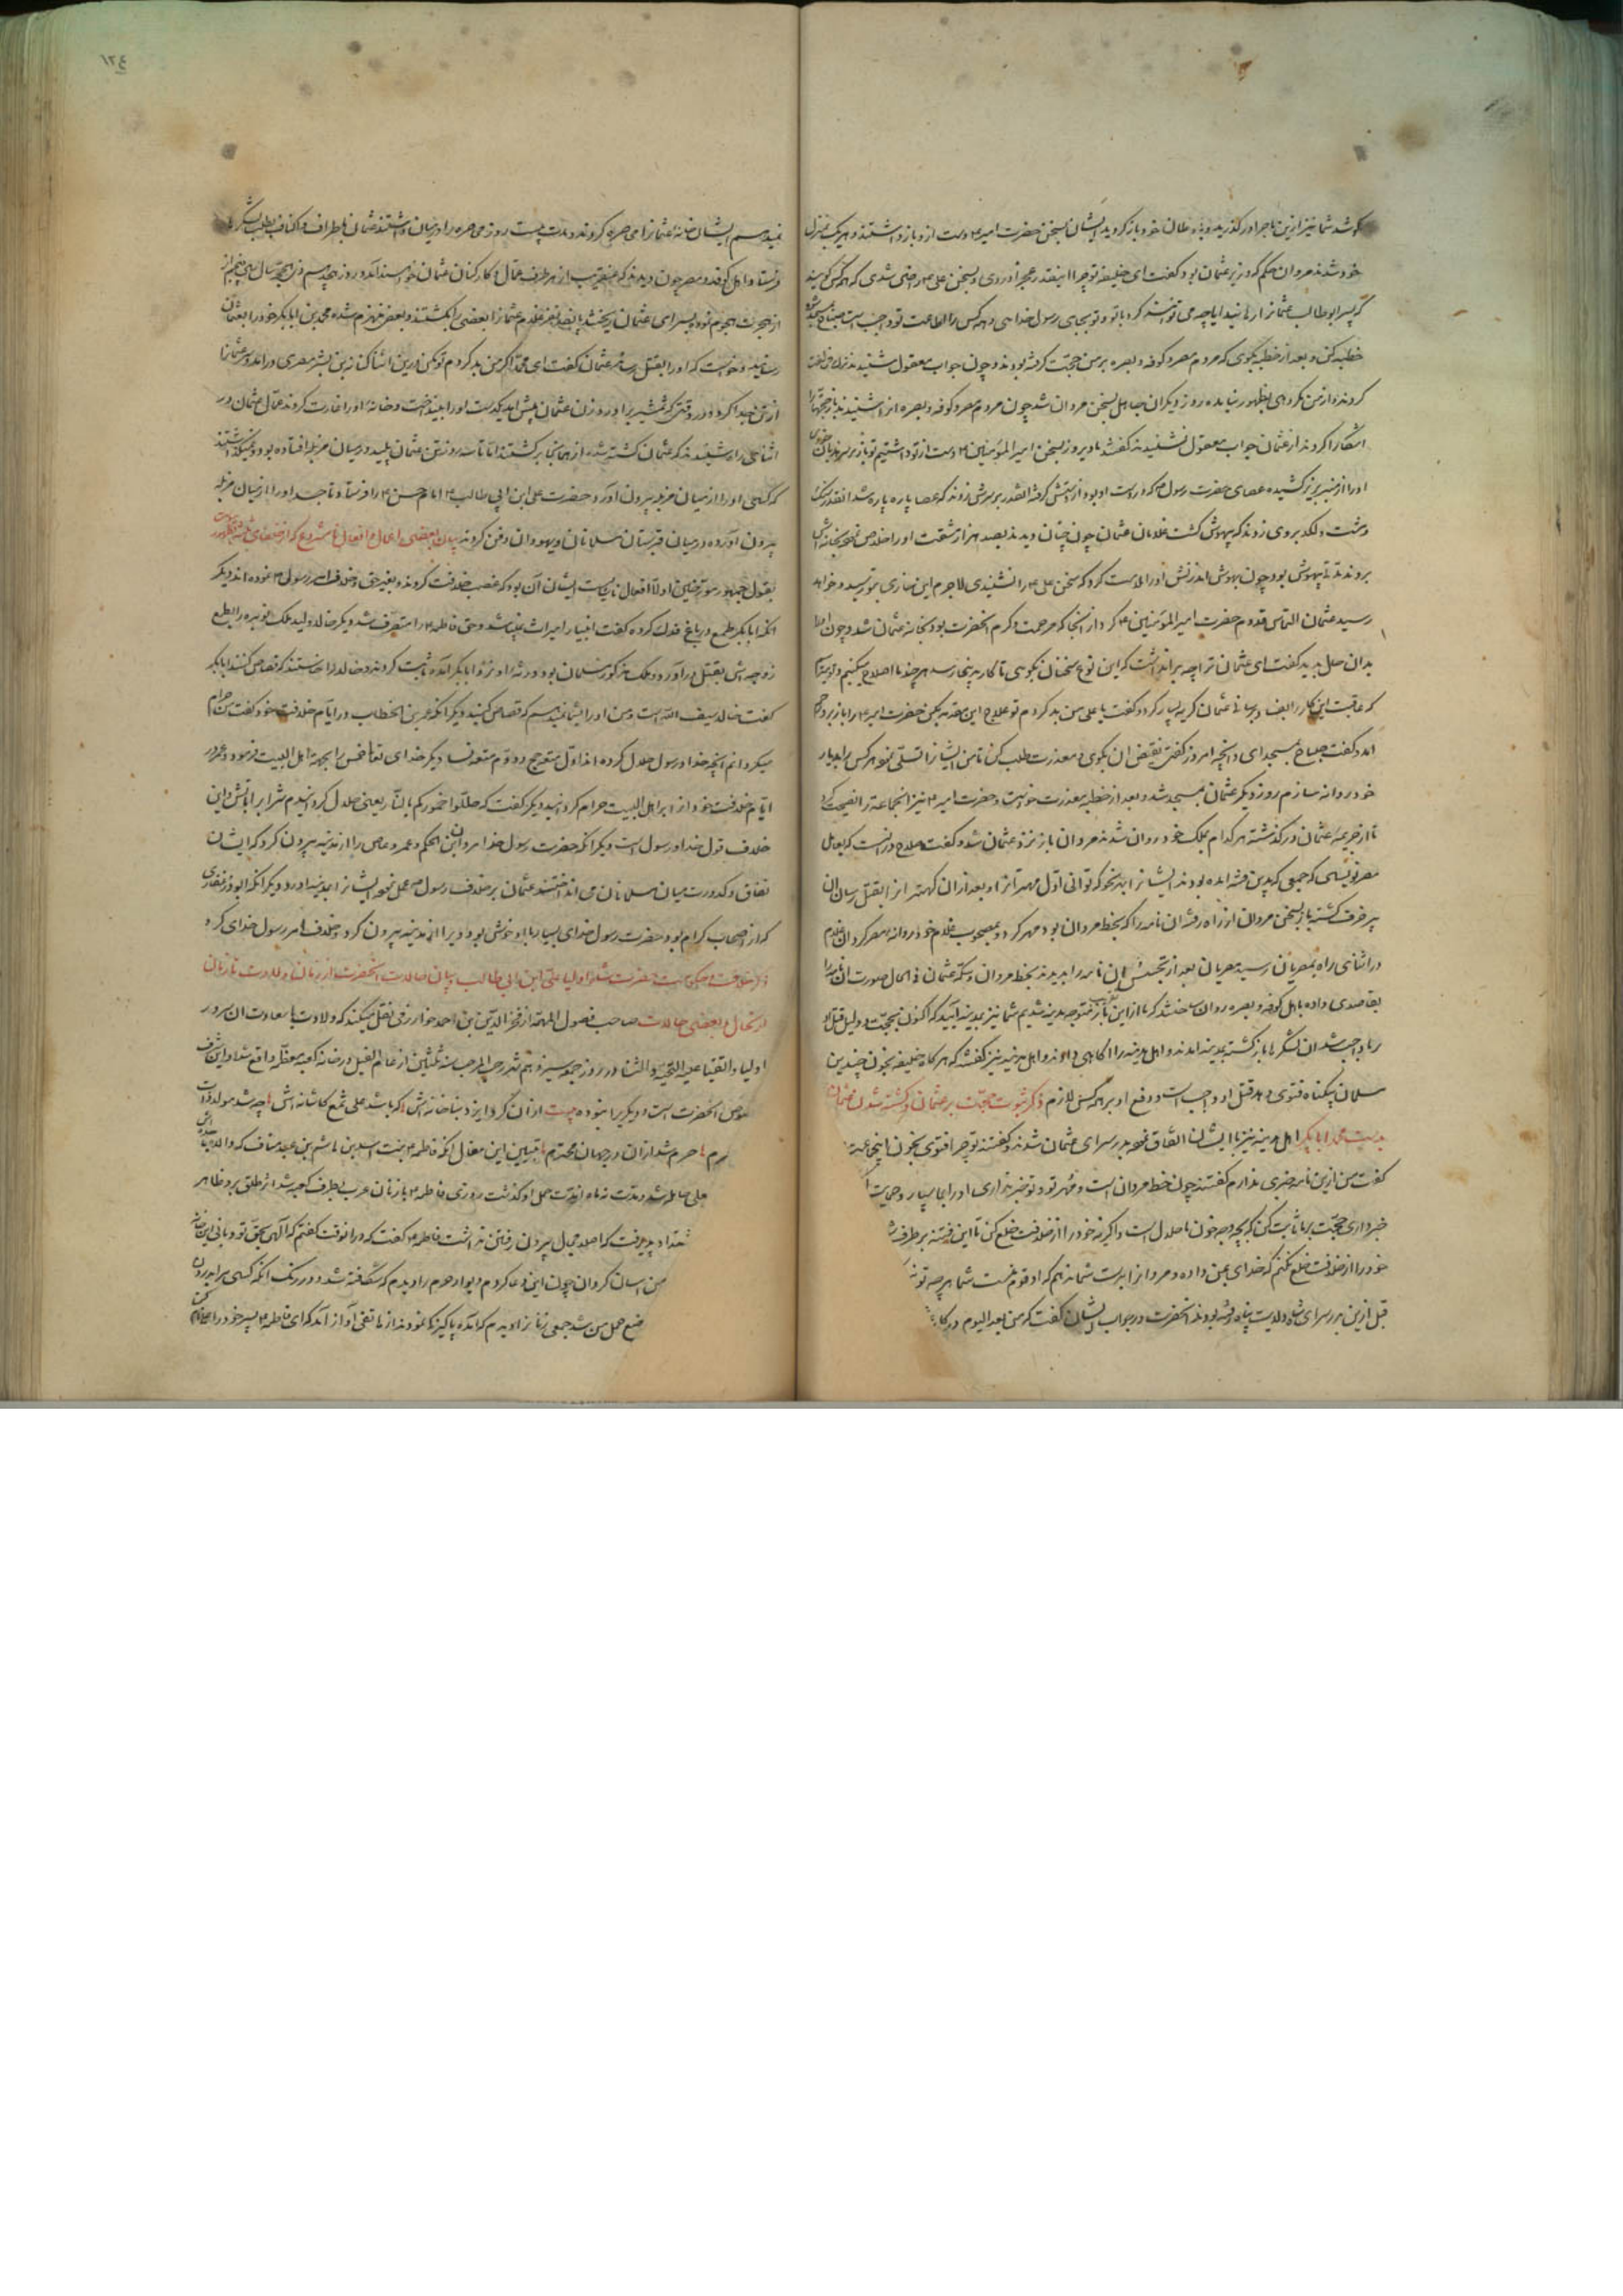 شد شما نیز ازین ماجرا در گذرید و باوطان خود باز گردید ایشان بسخن حضرت امیر ع دست ازو باز داشتند و هر یک بمنزل
خود شدند مروان حکم که وزیر عثمان بود گفت ای خلیفه تو چرا اینقدر عجز آوردی و بسخن علی راضی شدی که هر کس گوید
که پسر ابو طالب عثمانرا رهانید آیا چه می توانستند کرد با تو و تو بجای رسول خدایی و همه کس را اطاعت تو واجب است
خطبه کن و بعد از خطبه بگوی که مردم مصر و کوفه و بصره بر من حجت گرفته بودند و چون جواب معقول شنیدند
کردند و از من مکروهی بظهور نیامده روز دیگر آن جاهل بسخن مروان شد چون مردم مصر و کوفه و بصره این شنیدند باز حجتها را
آشکارا کردند از عثمان جواب معقول نشنیدند گفتند ما دیروز بسخن امیر المؤمنین ع دست از تو داشتیم تو باز بر سر
او را از منبر بزیر کشیده عصای حضرت رسول ص که در دست او بود از دستش گرفته آنقدر بر سرش زدند که عصا پاره پاره شد آنقدر سنگ
و مشت و لگد بر وی زدند که بیهوش گشت غلامان عثمان چون چنان دیدند بصد هزار مشقت او را خلاص
بردند مدتی بیهوش بود چون بهوش آمد زنش او را ملامت کرد که سخن علی ع را نشنیدی لاجرم این خواری بتو رسید و خواهد
رسید عثمان التماس قدوم حضرت امیر المؤمنین ع کرد از آنجا که مرحمت و کرم آنحضرت بود بخانه عثمان شد و چون او را
بدان حال بدید گفت ای عثمان ترا چه بر آن داشت که این نوع سخنان بگویی تا کار بدینجا رسد هر چند ما اصلاح میکنیم
که عاقبت این کار را عثمان گریه بسیار کرد و گفت یا علی من بد کردم تو علاج این مقدمه بکن حضرت امیر ع را باز
آمد و گفت صباح بمسجد آی و آنچه امروز گفتی نقیض آن بگوی و معذرت طلب کن تا من ایشانرا تسلی نموده هر کس را بدیار
خود روانه سازم روز دیگر عثمان بمسجد شد و بعد از خطبه معذرت خواست و حضرت امیر ع نیز آنجماعت را نصیحت کرد
تا از جریمه عثمان در گذشته هر کدام بملک خود روان شدند مروان باز نزد عثمان شد و گفت صلاح در آنست که بعامل
مصر نویسی که جمعی که بدین فتنه آمده بودند ایشانرا بهر نحو که توانی اول مهتر آنرا و بعد از آن کهتر آنرا بقتل رسان آن
پیر خرف گشته باز بسخن مروان از راه رفته آن نامه را که بخط مروان بود مهر کرد و بمصحوب غلام خود روانه مصر کرد آن غلام
در اثنای راه بمصریان رسید مصریان بعد از تجسس آن نامه را بدیدند بخط مروان و سکه عثمان فی الحال صورت آن نامه را
بقاصدی داده باهل کوفه و بصره روان ساختند که ما از این باز متوجه مدینه شدیم شما نیز بمدینه آیید که اکنون بحجت و دلیل قتل او
بر ما واجب شد آن لشکرها باز گشته بمدینه آمدند و اهل مدینه را آگاهی دادند و اهل مدینه نیز گفتند که هر گاه خلیفه بخون چندین
مسلمان بیگناه فتوی دهد قتل او واجب است و دفع او بر همه کس لازم ذکر ثبوت حجت بر عثمان و کشته شدن عثمان
بدست محمد ابا بکر اهل مدینه نیز با ایشان اتفاق نموده بدر سرای عثمان شدند و گفتند تو چرا فتوی بخون این جماعت
گفت من ازین نامه خبری ندارم گفتند چون خط مروان است و مهر تو و تو خبر نداری او را بما بسپار و حمایت
خبر داری حجت بر ما ثابت کن که بچه وجه خون ما حلال است و اگر نه خود را از خلافت خلع کن تا این فتنه بر طرف
خود را از خلافت خلع نکنم که خدای بمن داده و مروانرا بدست شما ندهم که او قوم منست شما هر چه توانید
قبل ازین بدر سرای شاه ولایت پناه رفته بودند آنحضرت در جواب ایشان گفت که من بعد الیوم در کار
١٢٤
نمیرسم ایشان خانه عثمانرا محاصره کردند و مدت بیست روز محاصره را در میان داشتند عثمان باطراف و اکناف بطلب لشکر
فرستاد و اهل کوفه و مصر چون دیدند که عنقریب از هر طرف عمال و کارکنان عثمان خواهند آمد روز هجدهم ذی الحجه سال سی و پنجم از
از هجرت هجوم نموده بسرای عثمان ریختند پانصد نفر غلام عثمانرا بعضی را بکشتند و بعضی منهزم شده محمد بن ابا بکر خود را بعثمان
رسانید و خواست که او را بقتل رساند عثمان گفت ای محمد اگر من بد کردم تو مکن درین اثنا کنانه بن بشر مصری در آمد و سر عثمانرا
از تن جدا کرد و در وقتی که شمشیر براورد زن عثمان پیش آمد یکدست او را بینداخت و خانه او را غارت کردند عمال عثمان در
اثنای راه شنیدند که عثمان کشته شده از همانجا بر گشتند اما تا سه روز تن عثمان پلید در میان مزبله افتاده بود و نمیگذاشتند
که کسی او را از میان مزبله بیرون آورد و حضرت علی ابن ابی طالب ع امام حسن ع را فرستاد تا جسد او را از میان مزبله
بیرون آورده در میان قبرستان مسلمانان و یهودان دفن کردند بیان بعضی اعمال و افعال نامشروع که از خلفای ثلثه
بقول جمهور مورخین اولا افعال ناشایست ایشان آن بود که غصب خلافت کردند و بغیر حق و خلاف امر رسول ص نموده اند دیگر
آنکه ابا بکر طمع در باغ فدک کرده گفت انبیا را میراث نمیباشد و حق فاطمه ع را متصرف شد و دیگر خالد ولید مالک نویره را بطمع
زوجه اش بقتل در آورد و مالک مذکور مسلمان بود و ورثه او نزد ابا بکر آمده ثابت کردند و خالد را خواستند که قصاص کنند ابا بکر
گفت خالد سیف الله است و من او را بشما نمیدهم که قصاص کنید و دیگر آنکه عمر بن الخطاب در ایام خلافت خود گفت من حرام
میگردانم آنچه خدا و رسول حلال کرده اند اول متعه حج و دوم متعه نسا و دیگر خدای تعالی خمس را بجهت اهل البیت فرمود و عمر در
ایام خلافت خود از اهل البیت حرام گردانید و دیگر گفت که حللوا خمورکم بالنار یعنی حلال گردانیدم شراب را بآتش و این
خلاف قول خدا و رسول است و دیگر آنکه حضرت رسول خدا مروان بن الحکم و عمرو عاص را از مدینه بیرون کرد که ایشان
نفاق و کدورت میان مسلمانان می انداختند عثمان بر خلاف رسول ص عمل نموده ایشانرا بمدینه آورد و دیگر آنکه ابوذر غفاری
که از اصحاب کرام بود و حضرت رسول خدای بسیار با او خوش بود ویرا از مدینه بیرون کرد و خلاف امر رسول خدای کرد
ذکر خلافت و حکومت حضرت شاه اولیا علی ابن ابی طالب و بیان حالات آنحضرت از زمان ولادت تا زمان
ارتحال و بعضی حالات صاحب فصول المهمه از فخر الدین بن احمد خوارزمی نقل میکند که ولادت با سعادت آن سرور
اولیا و اتقیا علیه التحیه و الثنا در روز جمعه سیزدهم شهر رجب المرجب سنه ثلثین از عام الفیل در خانه کعبه معظمه واقع شد و این شرف
مخصوص آنحضرت است و دیگریرا نبوده بیت از آن کرد ایزد بنا خانه اش که باشد علی شمع کاشانه اش چه شد مولد
حرم شد از آن در جهان محترم تبیین این مقال آنکه فاطمه بنت اسد بن هاشم بن عبد مناف که والده
علی حامله شد و مدت نه ماه از مدت حمل او گذشت روزی فاطمه ع با زنان عرب بطرف کعبه شد اثر طلق برو ظاهر
شتداد پذیرفت که اصلا مجال بیرون رفتن نداشت فاطمه ع گفت که در آنوقت گفتم که الهی بحق تو و بانی این خانه
من آسان گردان چون این دعا کردم دیوار حرم را دیدم که شکافته شد و در رنگ آنکه کسی مرا بدرون
وضع حمل من شد جمعی زنانرا دیدم که آمده پاکیزه نمودند از هاتفی آواز آمد که ای فاطمه ع پسر خود را